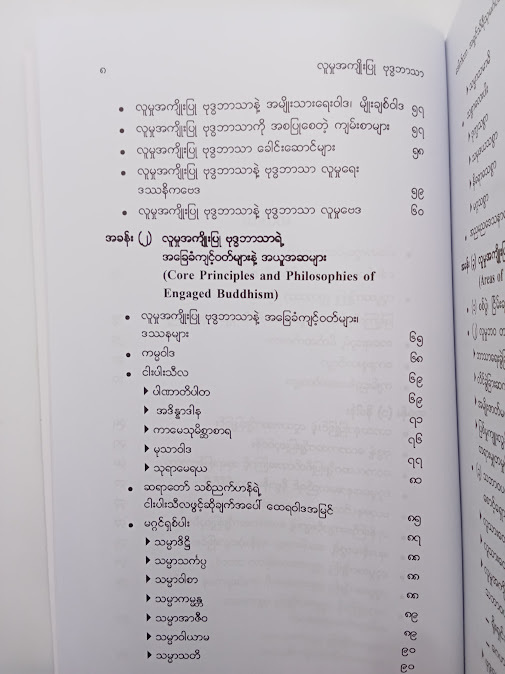 ၈ လူမှုအကျိုးပြု ဗုဒ္ဓဘာသာ
• လူမှုအကျိုးပြု ဗုဒ္ဓဘာသာနဲ့ အမျိုးသားရေးဝါဒ၊ မျိုးချစ်ဝါဒ ၅၅
• လူမှုအကျိုးပြု ဗုဒ္ဓဘာသာကို အစပြုစေတဲ့ ကျမ်းစာများ ၅၇
• လူမှုအကျိုးပြု ဗုဒ္ဓဘာသာ ခေါင်းဆောင်များ ၅၈
• လူမှုအကျိုးပြု ဗုဒ္ဓဘာသာနဲ့ ဗုဒ္ဓဘာသာ လူမှုရေး
ဒဿနိကဗေဒ ၅၉
• လူမှုအကျိုးပြု ဗုဒ္ဓဘာသာနဲ့ ဗုဒ္ဓဘာသာ လူမှုဗေဒ ၆၀
အခန်း (၂) လူမှုအကျိုးပြု ဗုဒ္ဓဘာသာရဲ့
အခြေခံကျင့်ဝတ်များနဲ့ အယူအဆများ
(Core Principles and Philosophies of
Engaged Buddhism)
• လူမှုအကျိုးပြု ဗုဒ္ဓဘာသာနဲ့ အခြေခံကျင့်ဝတ်များ၊
ဒဿနများ ၆၅
• ကမ္မဝါဒ ၆၈
• ငါးပါးသီလ ၆၉
ပါဏာတိပါတ ၆၉
အဒိန္နာဒါန ၇၁
ကာမေသုမိစ္ဆာစာရ ၇၆
မုသာဝါဒ ၇၇
သုရာမေရယ ၈၀
• ဆရာတော် သစ်ညက်ဟန်ရဲ့
ငါးပါးသီလဖွင့်ဆိုချက်အပေါ် ထေရဝါဒအမြင် ၈၅
• မဂ္ဂင်ရှစ်ပါး ၈၇
သမ္မာဒိဋ္ဌိ ၈၈
သမ္မာသင်္ကပ္ပ ၈၈
သမ္မာဝါစာ ၈၈
သမ္မာကမ္မန္တ ၈၉
သမ္မာအာဇီဝ ၈၉
သမ္မာဝါယာမ ၉၀
သမ္မာသတိ ၉၀